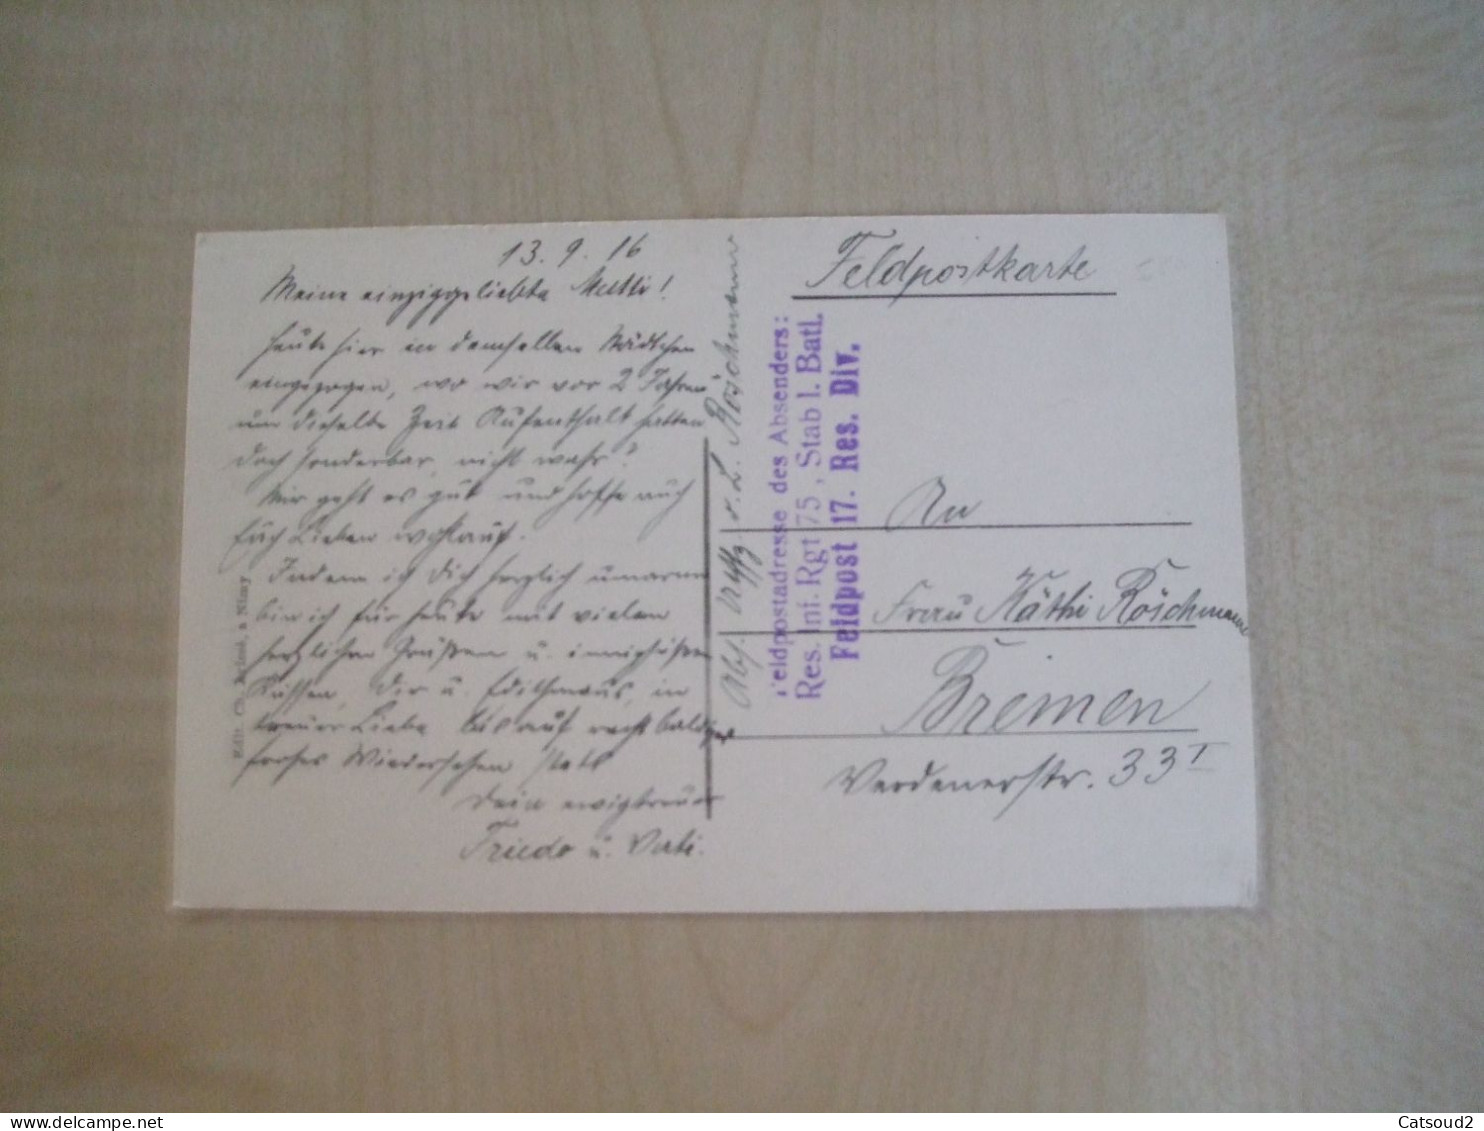 13. 9. 16
Meine einziggeliebte Mutti!
Heute hier in demselben Städtchen
eingezogen, wo wir vor 2 Jahren
um dieselbe Zeit Aufenthalt hatten
doch sonderbar, nicht wahr?
Mir geht es gut und hoffe auch
Euch Lieben wohlauf.
Indem ich Dich herzlich umarme
bin ich für heute mit vielen
herzlichen Grüßen u. innigsüßen
Küssen, Dir u. Edithmaus, in
treuer Liebe bis auf recht baldiges
frohes Wiedersehen stets
Dein ewigtreuer
Friedo u. Vati.
Edit. Ch. à Nimy
Abs. Uffz. d. L. Röschmann
Feldpostadresse des Absenders:
Res. Inf. Rgt 75, Stab I. Batl.
Feldpost 17. Res. Div.
Feldpostkarte
An
Frau Käthi Röschmann
Bremen
Verdenerstr. 33 I
Catsoud2